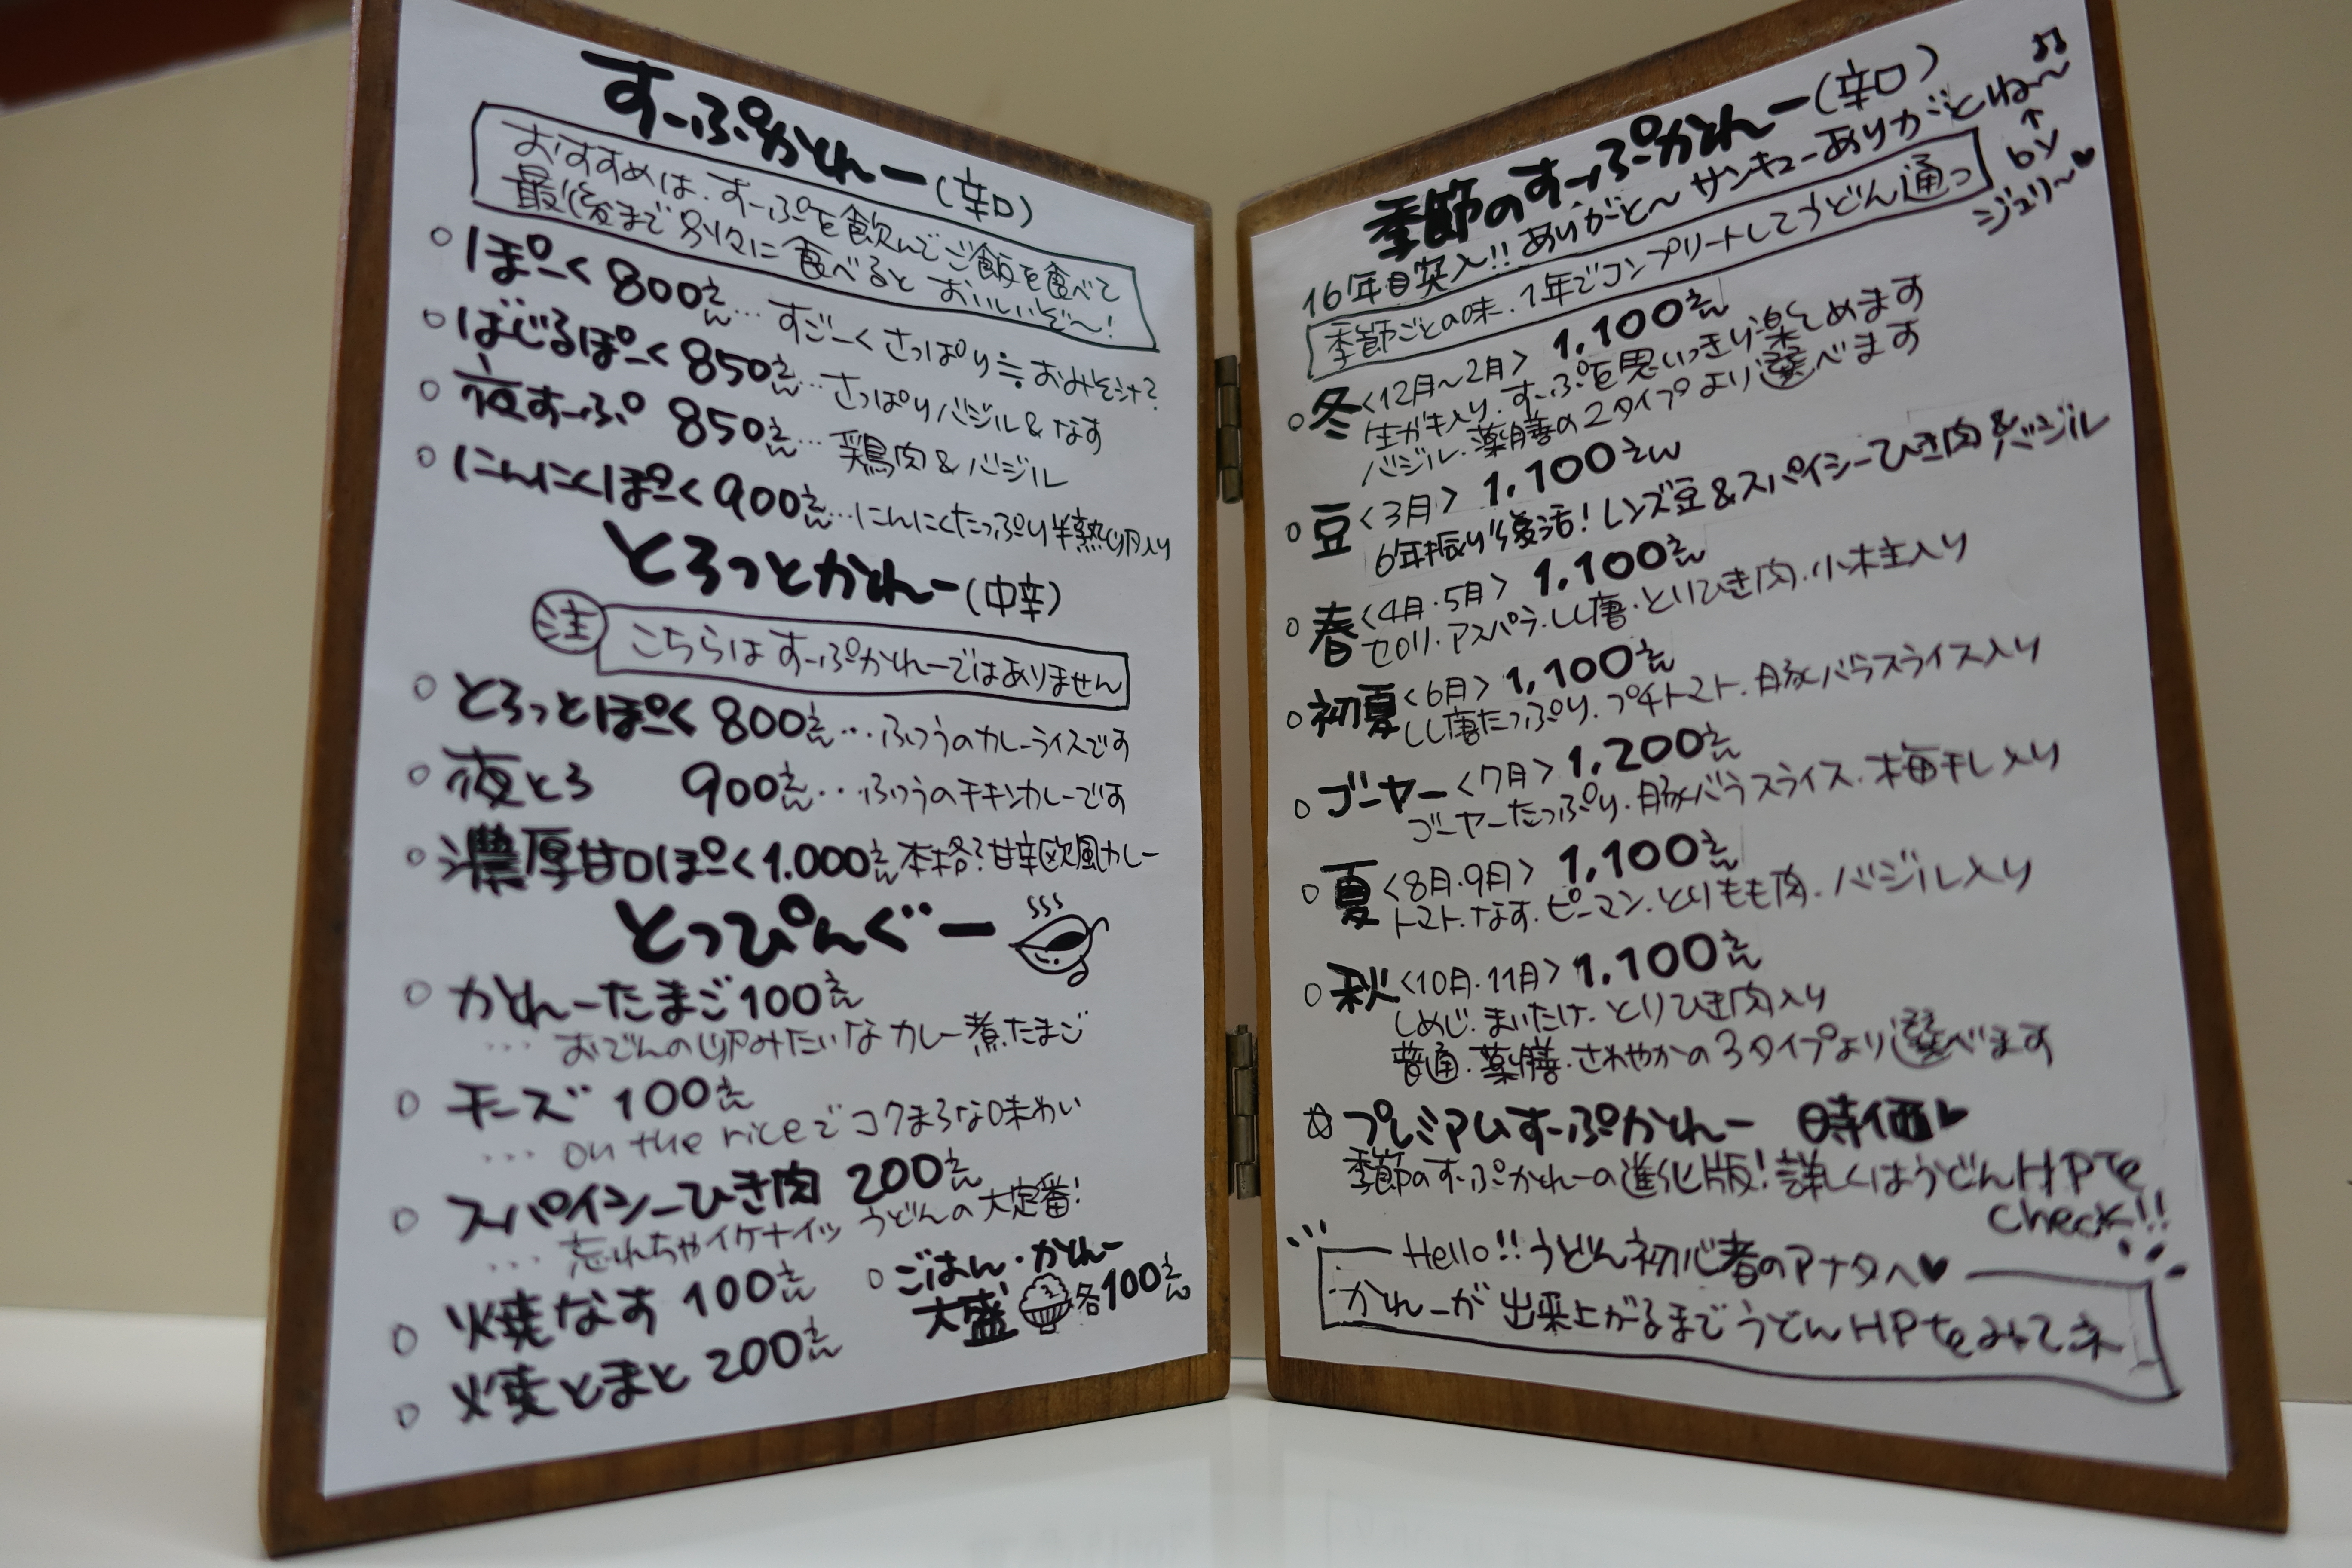 すーぷかれー(辛口)
おすすめは、すーぷを飲んでご飯を食べて
最後まで別々に食べるとおいしいぞ〜!
○ ぽーく 800えん…すごーくさっぱり≒おみそ汁?
○ ばじるぽーく 850えん…さっぱりバジル&なす
○ 夜すーぷ 850えん…鶏肉&バジル
○ にんにくぽーく 900えん…にんにくたっぷり半熟卵入り
とろっとかれー(中辛)
注 こちらはすーぷかれーではありません
○ とろっとぽーく 800えん…ふつうのカレーライスです
○ 夜とろ 900えん…ふつうのチキンカレーです
○ 濃厚甘口ぽーく 1.000えん本格?甘辛欧風カレー
とっぴんぐー
○ かれーたまご 100えん
…おでんの卵みたいなカレー煮たまご
○ チーズ 100えん
…on the riceでコクまろな味わい
○ スパイシーひき肉 200えん
…忘れちゃイケナイッうどんの大定番!
○ 焼なす 100えん
○ 焼とまと 200えん
○ ごはん・かれー
大盛 各100えん
季節のすーぷかれー(辛口)
16年目突入!!ありがと〜サンキューありがとね〜♫
↑
by
ジュリ〜♥
季節ごとの味、1年でコンプリートしてうどん通っ
○ 冬<12月〜2月> 1,100えん
生ガキ入り、すーぷを思いっきり楽しめます
バジル、薬膳の2タイプより選べます
○ 豆<3月> 1,100えん
6年振り復活!レンズ豆&スパイシーひき肉&バジル
○ 春<4月・5月> 1,100えん
セロリ・アスパラ・しし唐・とりひき肉・小柱入り
○ 初夏<6月> 1,100えん
しし唐たっぷり、プチトマト、豚バラスライス入り
○ ゴーヤー<7月> 1,200えん
ゴーヤーたっぷり、豚バラスライス、梅干し入り
○ 夏<8月・9月> 1,100えん
トマト、なす、ピーマン、とりもも肉、バジル入り
○ 秋<10月・11月> 1,100えん
しめじ、まいたけ、とりひき肉入り
普通・薬膳・さわやかの3タイプより選べます
☆ プレミアムすーぷかれー 時価♥
季節のすーぷかれーの進化版!詳しくはうどんHPを
check!!
Hello!!うどん初心者のアナタへ♥
かれーが出来上がるまでうどんHPをみてネ